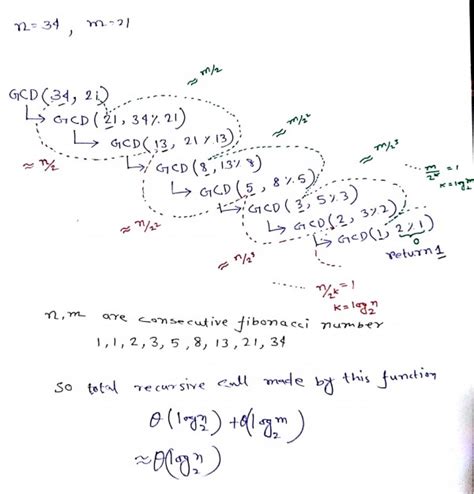 n=34, m=21
≈ m/2
GCD(34, 21)
↳ GCD(21, 34%21)
≈ m/2²
↳ GCD(13, 21%13)
≈ m/2³
≈ n/2
↳ GCD(8, 13%8)
m/2ᵏ = 1
↳ GCD(5, 8%5)
k = log₂m
↳ GCD(3, 5%3)
≈ n/2²
↳ GCD(2, 3%2)
↳ GCD(1, 2%1)
0
≈ n/2³
return 1
n/2ᵏ = 1
k = log₂n
n,m are consecutive fibonacci number
1,1,2,3,5,8,13,21,34
so total recursive call made by this function
θ(log₂n) + θ(log₂m)
≈ θ(log₂n)